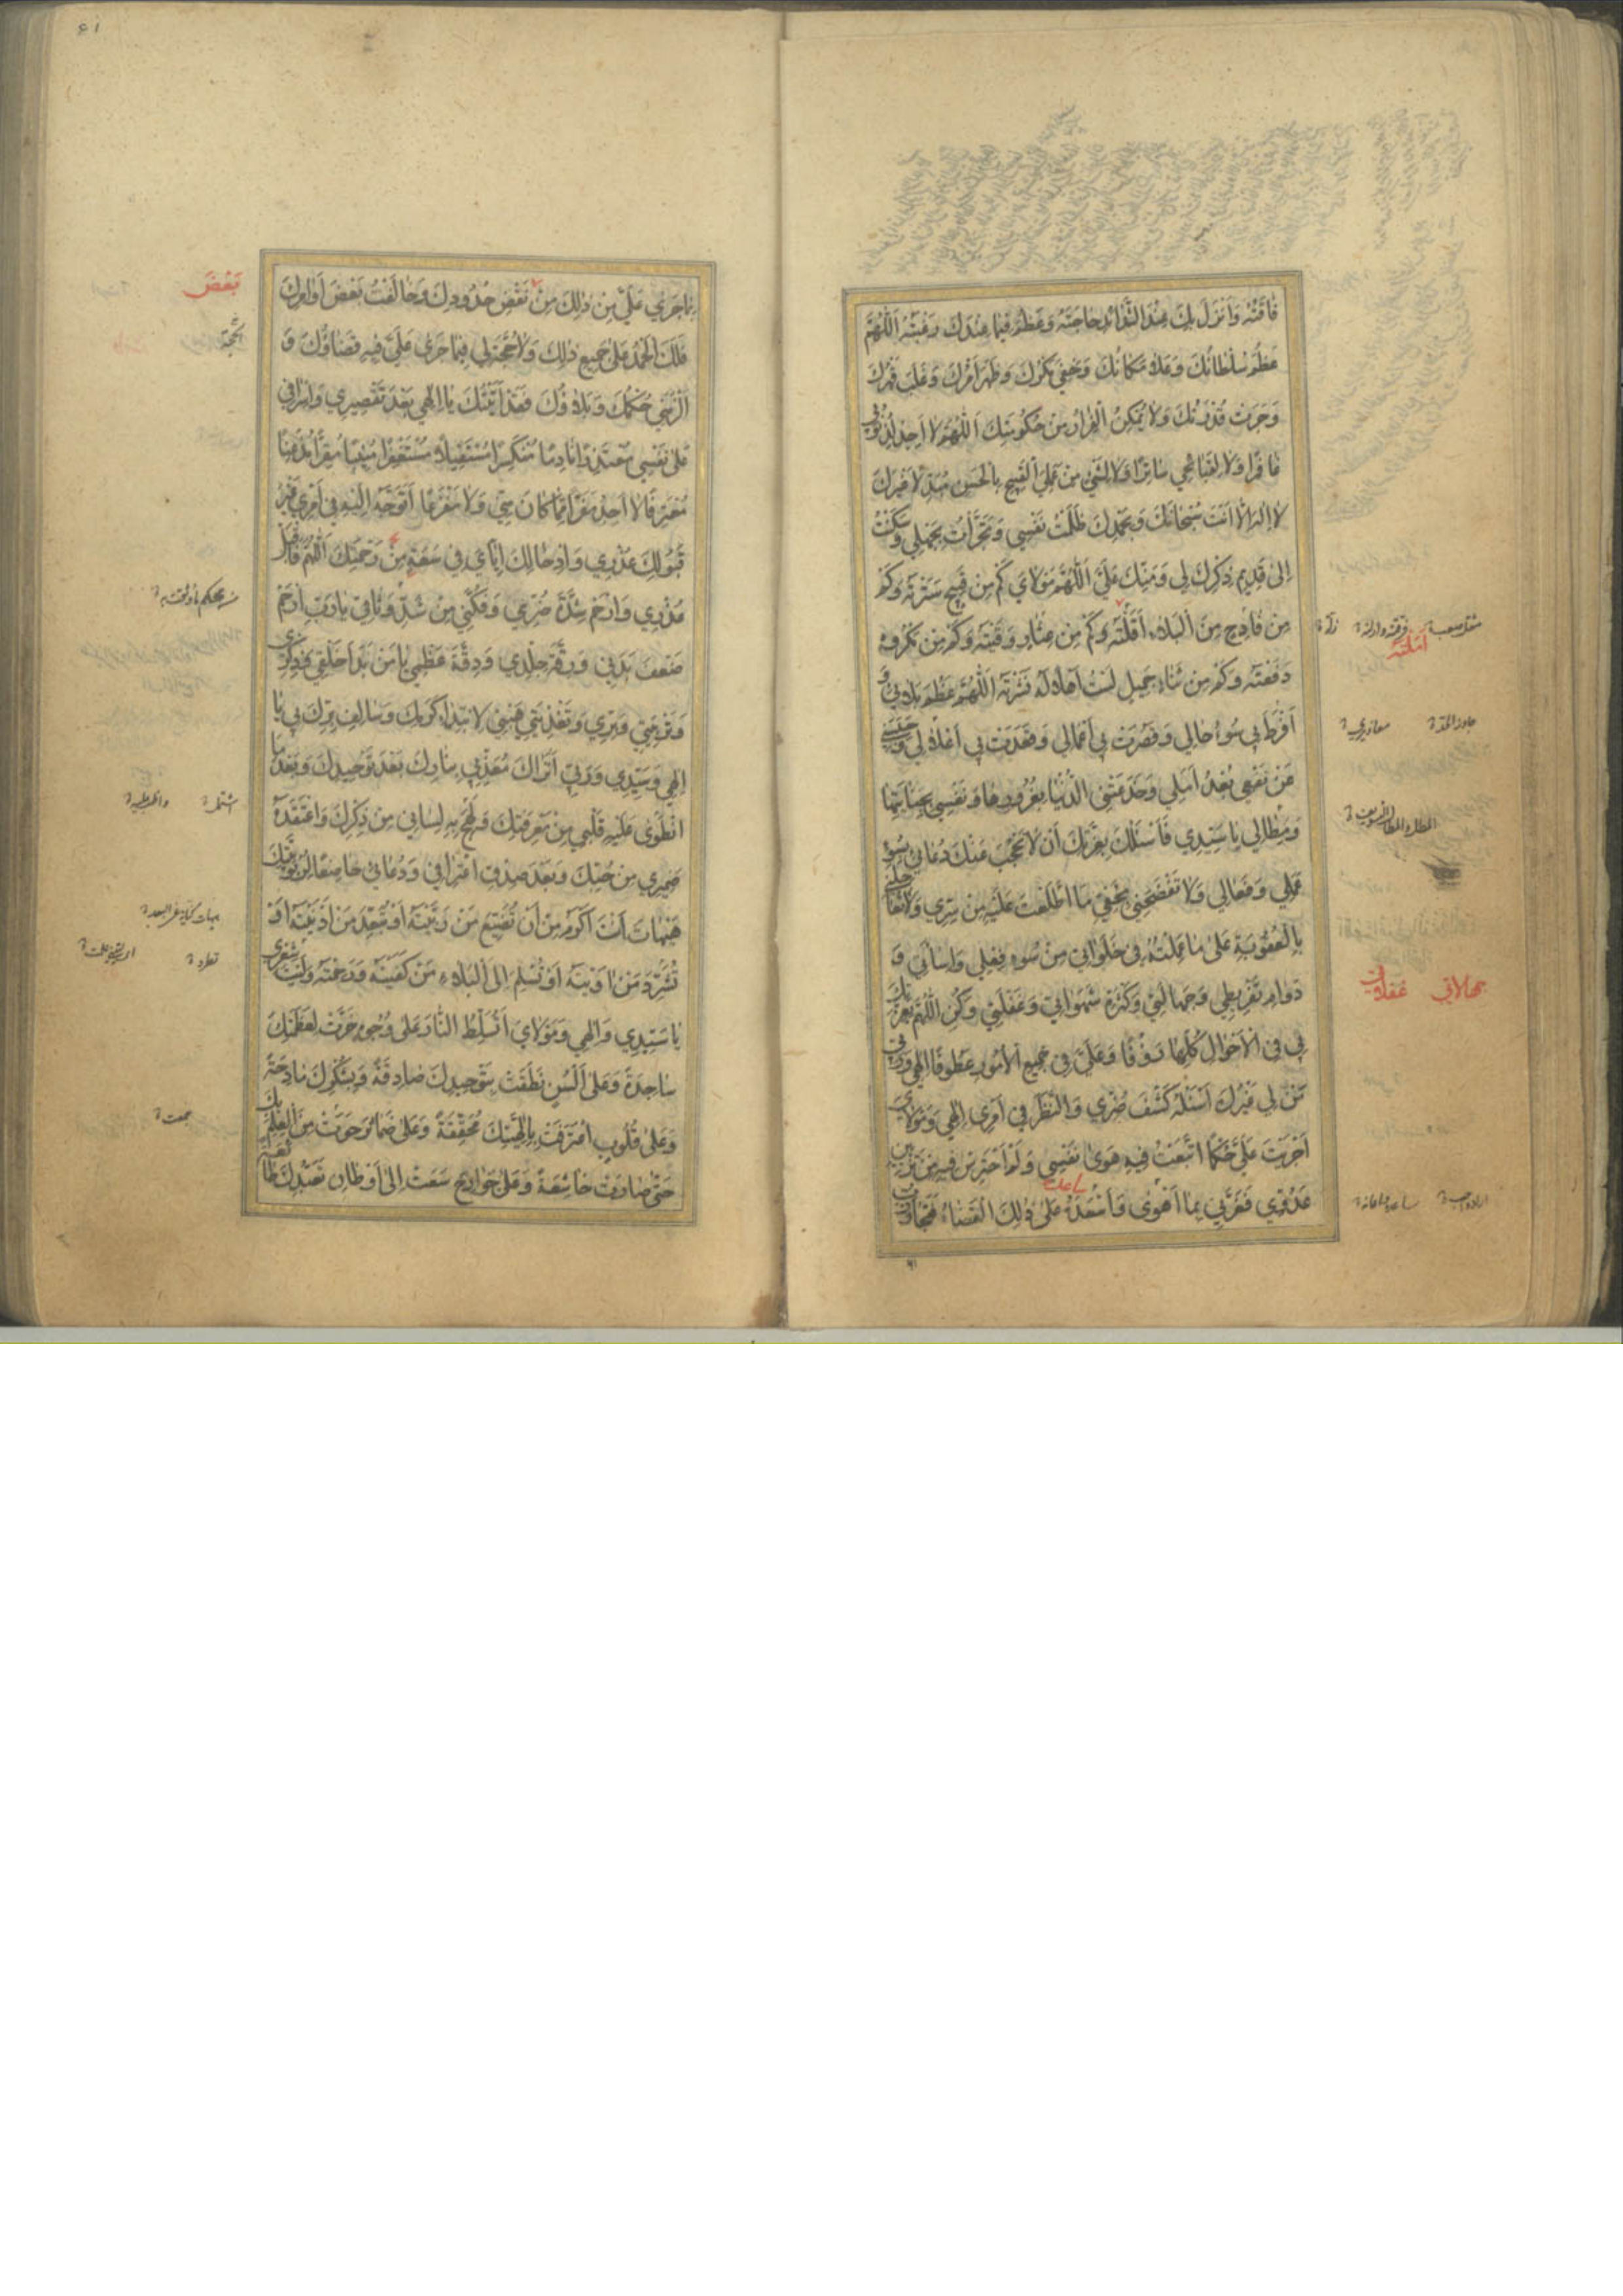 فَاقَتُهُ وَاَنْزَلَ بِكَ عِنْدَ الشَّدَائِدِ حَاجَتَهُ وَعَظُمَ فِيمَا عِنْدَكَ رَغْبَتُهُ اَللّٰهُمَّ
عَظُمَ سُلْطَانُكَ وَعَلَا مَكَانُكَ وَخَفِيَ مَكْرُكَ وَظَهَرَ اَمْرُكَ وَغَلَبَ قَهْرُكَ
وَجَرَتْ قُدْرَتُكَ وَلَا يُمْكِنُ الْفِرَارُ مِنْ حُكُومَتِكَ اَللّٰهُمَّ لَا اَجِدُ لِذُنُوبِي
غَافِرًا وَلَا لِقَبَائِحِي سَاتِرًا وَلَا لِشَيْءٍ مِنْ عَمَلِيَ الْقَبِيحِ بِالْحَسَنِ مُبَدِّلًا غَيْرَكَ
لَا اِلٰهَ اِلَّا اَنْتَ سُبْحَانَكَ وَبِحَمْدِكَ ظَلَمْتُ نَفْسِي وَتَجَرَّأْتُ بِجَهْلِي وَسَكَنْتُ
اِلٰى قَدِيمِ ذِكْرِكَ لِي وَمَنِّكَ عَلَيَّ اَللّٰهُمَّ مَوْلَايَ كَمْ مِنْ قَبِيحٍ سَتَرْتَهُ وَكَمْ
مِنْ فَادِحٍ مِنَ الْبَلَاءِ اَقَلْتَهُ وَكَمْ مِنْ عِثَارٍ وَقَيْتَهُ وَكَمْ مِنْ مَكْرُوهٍ
دَفَعْتَهُ وَكَمْ مِنْ ثَنَاءٍ جَمِيلٍ لَسْتُ اَهْلًا لَهُ نَشَرْتَهُ اَللّٰهُمَّ عَظُمَ بَلَائِي وَ
اَفْرَطَ بِي سُوءُ حَالِي وَقَصُرَتْ بِي اَعْمَالِي وَقَعَدَتْ بِي اَغْلَالِي وَحَبَسَنِي
عَنْ نَفْعِي بُعْدُ اَمَلِي وَخَدَعَتْنِي الدُّنْيَا بِغُرُورِهَا وَنَفْسِي بِجِنَايَتِهَا
وَمِطَالِي يَا سَيِّدِي فَاَسْئَلُكَ بِعِزَّتِكَ اَنْ لَا يَحْجُبَ عَنْكَ دُعَائِي سُوءُ
عَمَلِي وَفِعَالِي وَلَا تَفْضَحْنِي بِخَفِيِّ مَا اطَّلَعْتَ عَلَيْهِ مِنْ سِرِّي وَلَا تُعَاجِلْنِي
بِالْعُقُوبَةِ عَلٰى مَا عَمِلْتُهُ فِي خَلَوَاتِي مِنْ سُوءِ فِعْلِي وَاِسَائَتِي وَ
دَوَامِ تَفْرِيطِي وَجَهَالَتِي وَكَثْرَةِ شَهَوَاتِي وَغَفْلَتِي وَكُنِ اللّٰهُمَّ بِعِزَّتِكَ
لِي فِي الْاَحْوَالِ كُلِّهَا رَؤُفًا وَعَلَيَّ فِي جَمِيعِ الْاُمُورِ عَطُوفًا اِلٰهِي وَرَبِّي
مَنْ لِي غَيْرُكَ اَسْئَلُهُ كَشْفَ ضُرِّي وَالنَّظَرَ فِي اَمْرِي اِلٰهِي وَمَوْلَايَ
اَجْرَيْتَ عَلَيَّ حُكْمًا اتَّبَعْتُ فِيهِ هَوٰى نَفْسِي وَلَمْ اَحْتَرِسْ فِيهِ مِنْ تَزْيِينِ
عَدُوِّي فَغَرَّنِي بِمَا اَهْوٰى وَاَسْعَدَهُ عَلٰى ذٰلِكَ الْقَضَاءُ فَتَجَاوَزْتُ
اَقَلْتَهُ
جهالاتي غفلاتي
بِمَا جَرٰى عَلَيَّ مِنْ ذٰلِكَ مِنْ نَقْضِ حُدُودِكَ وَخَالَفْتُ بَعْضَ اَوَامِرِكَ
فَلَكَ الْحَمْدُ عَلٰى جَمِيعِ ذٰلِكَ وَلَا حُجَّةَ لِي فِيمَا جَرٰى عَلَيَّ فِيهِ قَضَاؤُكَ وَ
اَلْزَمَنِي حُكْمُكَ وَبَلَاؤُكَ وَقَدْ اَتَيْتُكَ يَا اِلٰهِي بَعْدَ تَقْصِيرِي وَاِسْرَافِي
عَلٰى نَفْسِي مُعْتَذِرًا نَادِمًا مُنْكَسِرًا مُسْتَقِيلًا مُسْتَغْفِرًا مُنِيبًا مُقِرًّا مُذْعِنًا
مُعْتَرِفًا لَا اَجِدُ مَفَرًّا مِمَّا كَانَ مِنِّي وَلَا مَفْزَعًا اَتَوَجَّهُ اِلَيْهِ فِي اَمْرِي غَيْرَ
قَبُولِكَ عُذْرِي وَاِدْخَالِكَ اِيَّايَ فِي سَعَةٍ مِنْ رَحْمَتِكَ اَللّٰهُمَّ فَاقْبَلْ
عُذْرِي وَارْحَمْ شِدَّةَ ضُرِّي وَفُكَّنِي مِنْ شَدِّ وَثَاقِي يَا رَبِّ ارْحَمْ
ضَعْفَ بَدَنِي وَرِقَّةَ جِلْدِي وَدِقَّةَ عَظْمِي يَا مَنْ بَدَأَ خَلْقِي وَذِكْرِي
وَتَرْبِيَتِي وَبِرِّي وَتَغْذِيَتِي هَبْنِي لِابْتِدَاءِ كَرَمِكَ وَسَالِفِ بِرِّكَ بِي يَا
اِلٰهِي وَسَيِّدِي وَرَبِّي اَتُرَاكَ مُعَذِّبِي بِنَارِكَ بَعْدَ تَوْحِيدِكَ وَبَعْدَ مَا
انْطَوٰى عَلَيْهِ قَلْبِي مِنْ مَعْرِفَتِكَ وَلَهِجَ بِهِ لِسَانِي مِنْ ذِكْرِكَ وَاعْتَقَدَهُ
ضَمِيرِي مِنْ حُبِّكَ وَبَعْدَ صِدْقِ اعْتِرَافِي وَدُعَائِي خَاضِعًا لِرُبُوبِيَّتِكَ
هَيْهَاتَ اَنْتَ اَكْرَمُ مِنْ اَنْ تُضَيِّعَ مَنْ رَبَّيْتَهُ اَوْ تُبَعِّدَ مَنْ اَدْنَيْتَهُ اَوْ
تُشَرِّدَ مَنْ اٰوَيْتَهُ اَوْ تُسْلِمَ اِلَى الْبَلَاءِ مَنْ كَفَيْتَهُ وَرَحِمْتَهُ وَلَيْتَ شِعْرِي
يَا سَيِّدِي وَاِلٰهِي وَمَوْلَايَ اَتُسَلِّطُ النَّارَ عَلٰى وُجُوهٍ خَرَّتْ لِعَظَمَتِكَ
سَاجِدَةً وَعَلٰى اَلْسُنٍ نَطَقَتْ بِتَوْحِيدِكَ صَادِقَةً وَبِشُكْرِكَ مَادِحَةً
وَعَلٰى قُلُوبٍ اعْتَرَفَتْ بِاِلٰهِيَّتِكَ مُحَقِّقَةً وَعَلٰى ضَمَائِرَ حَوَتْ مِنَ الْعِلْمِ بِكَ
حَتّٰى صَارَتْ خَاشِعَةً وَعَلٰى جَوَارِحَ سَعَتْ اِلٰى اَوْطَانِ تَعَبُّدِكَ طَائِعَةً
بَعْضَ